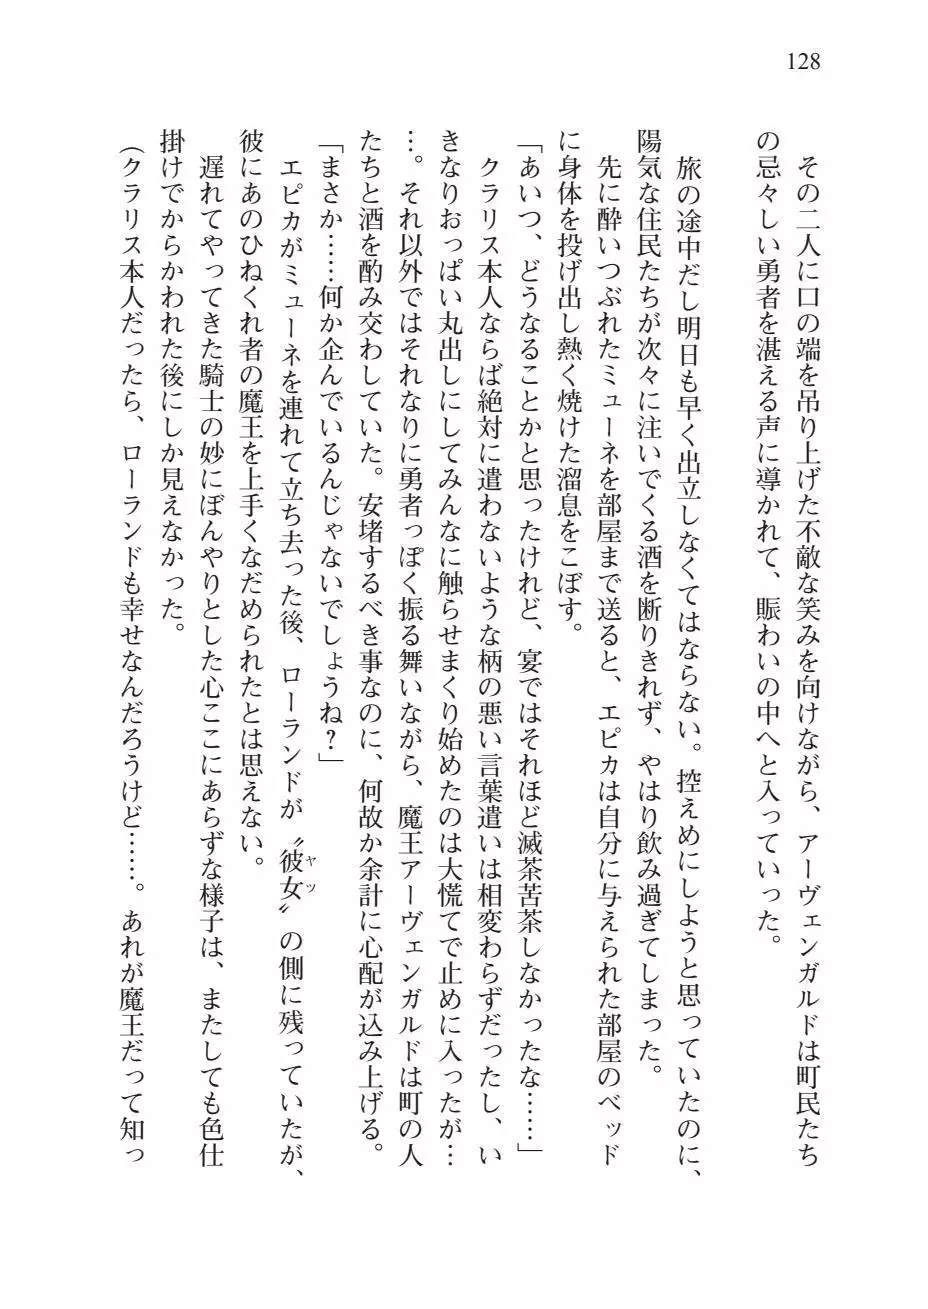 128
　その二人に口の端を吊り上げた不敵な笑みを向けながら、アーヴェンガルドは町民たち
の忌々しい勇者を湛える声に導かれて、賑わいの中へと入っていった。
　旅の途中だし明日も早く出立しなくてはならない。控えめにしようと思っていたのに、
陽気な住民たちが次々に注いでくる酒を断りきれず、やはり飲み過ぎてしまった。
　先に酔いつぶれたミューネを部屋まで送ると、エピカは自分に与えられた部屋のベッド
に身体を投げ出し熱く焼けた溜息をこぼす。
「あいつ、どうなることかと思ったけれど、宴ではそれほど滅茶苦茶しなかったな……」
　クラリス本人ならば絶対に遣わないような柄の悪い言葉遣いは相変わらずだったし、い
きなりおっぱい丸出しにしてみんなに触らせまくり始めたのは大慌てで止めに入ったが…
…。それ以外ではそれなりに勇者っぽく振る舞いながら、魔王アーヴェンガルドは町の人
たちと酒を酌み交わしていた。安堵するべき事なのに、何故か余計に心配が込み上げる。
「まさか……何か企んでいるんじゃないでしょうね？」
　エピカがミューネを連れて立ち去った後、ローランドが〝彼女〟の側に残っていたが、
ヤツ
彼にあのひねくれ者の魔王を上手くなだめられたとは思えない。
　遅れてやってきた騎士の妙にぼんやりとした心ここにあらずな様子は、またしても色仕
掛けでからかわれた後にしか見えなかった。
（クラリス本人だったら、ローランドも幸せなんだろうけど……。あれが魔王だって知っ